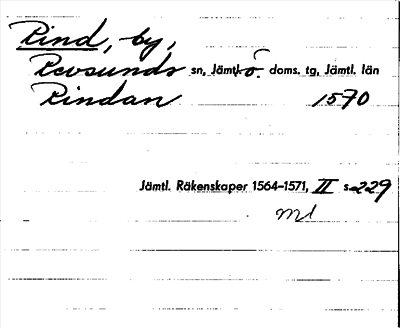 Rind, by,
Revsunds sn, Jämtl. ö. doms. tg, Jämtl. län
Rindan 1570
Jämtl. Räkenskaper 1564–1571, II s. 229